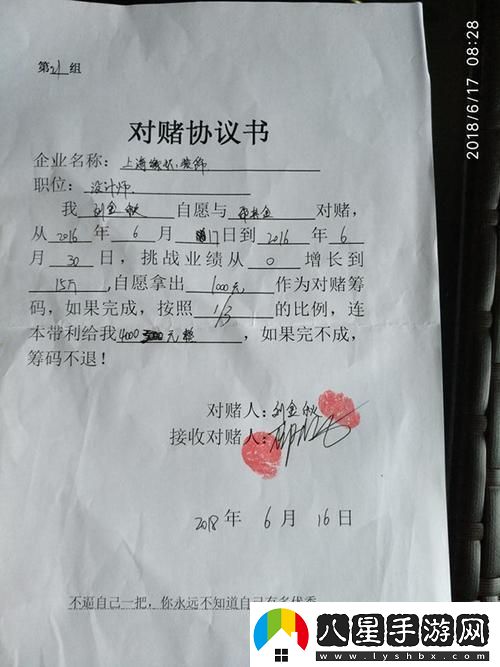 2018/6/17 08:28
第21组
对赌协议书
企业名称：上海 装饰
职位：设计师
我 刘金 自愿与 对赌，
从2016年 6 月 17日到 2016 年 6
月 30 日，挑战业绩从 0 增长到
15万 ,自愿拿出 1000元 作为对赌筹
码，如果完成，按照 1/3 的比例，连
本带利给我4000 元整 ，如果完不成，
筹码不退！
对赌人：刘金
接收对赌人：
2018 年 6 月 16 日
不逼自己一把，你永远不知道自己有多优秀
八星手游网
www.lyshbx.com